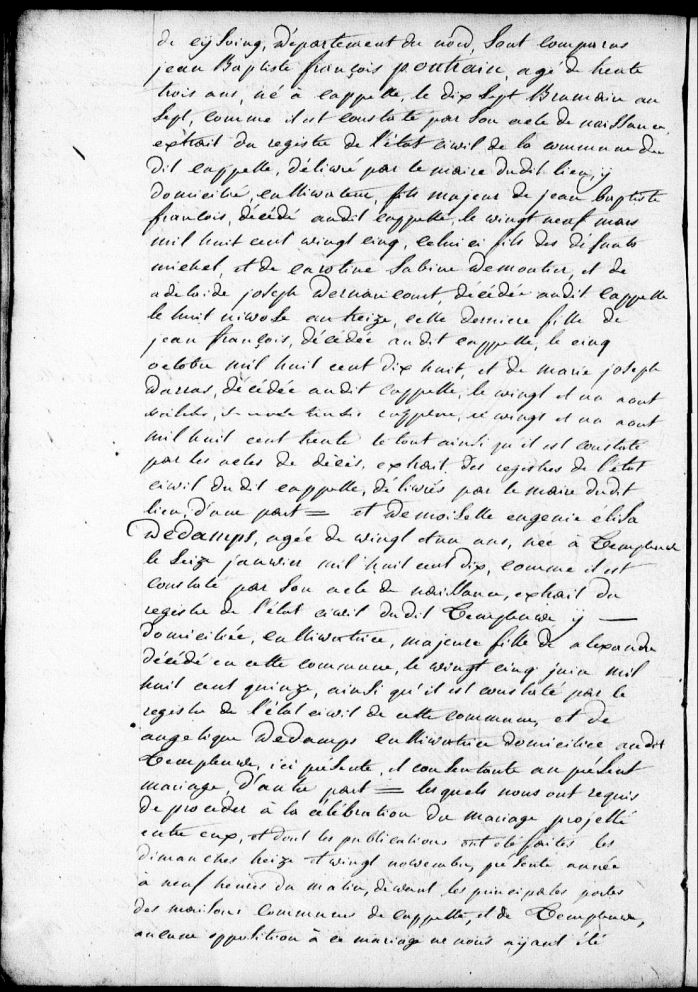 de cysoing, département du nord, sont comparus
jean Baptiste françois pontrain, agé de trente
trois ans, né à cappelle, le dix sept Brumaire an
sept, comme il est constaté par son acte de naissance,
extrait du registre de l'état civil de la commune du
dit cappelle, délivré par le maire dudit lieu, y
domicilié, cultivateur, fils majeur de jean baptiste
françois, décédé audit cappelle, le vingt neuf mars
mil huit cent vingt cinq, celui ci fils des défunts
michel, et de caroline Sabine Demontier, et de
adelaide joseph Dernancourt, décédée audit Cappelle
le huit nivose an treize, cette derniere fille de
jean françois, décédé audit cappelle, le cinq
octobre mil huit cent dix huit, et de marie joseph
Darras, décédée audit Cappelle, le vingt et un aout
cappelle, le vingt et un aout
mil huit cent trente le tout ainsi qu'il est constaté
par les actes de décès, extrait des registres de l'état
civil dudit cappelle, délivrés par le maire dudit
lieu, d'une part = et Demoiselle eugenie elisa
Dedamps, agée de vingt et un ans, née à Templeuve
le seize janvier mil huit cent dix, comme il est
constaté par son acte de naissance, extrait du
registre de l'état civil dudit Templeuve y —
domiciliée, cultivatrice, majeure fille de alexandre
décédé en cette commune, le vingt cinq juin mil
huit cent quinze, ainsi qu'il est constaté par le
registre de l'état civil de cette commune, et de
angelique Dedamps cultivatrice domiciliée audit
Templeuve, ici présente, et consentante au présent
mariage, d'autre part = lesquels nous ont requis
de procéder à la célébration du mariage projetté
entre eux, et dont les publications ont été faites les
dimanches treize et vingt novembre, présente année
à neuf heures du matin, devant les principales portes
des maisons communes de cappelle, et de Templeuve,
aucune opposition à ce mariage ne nous ayant été